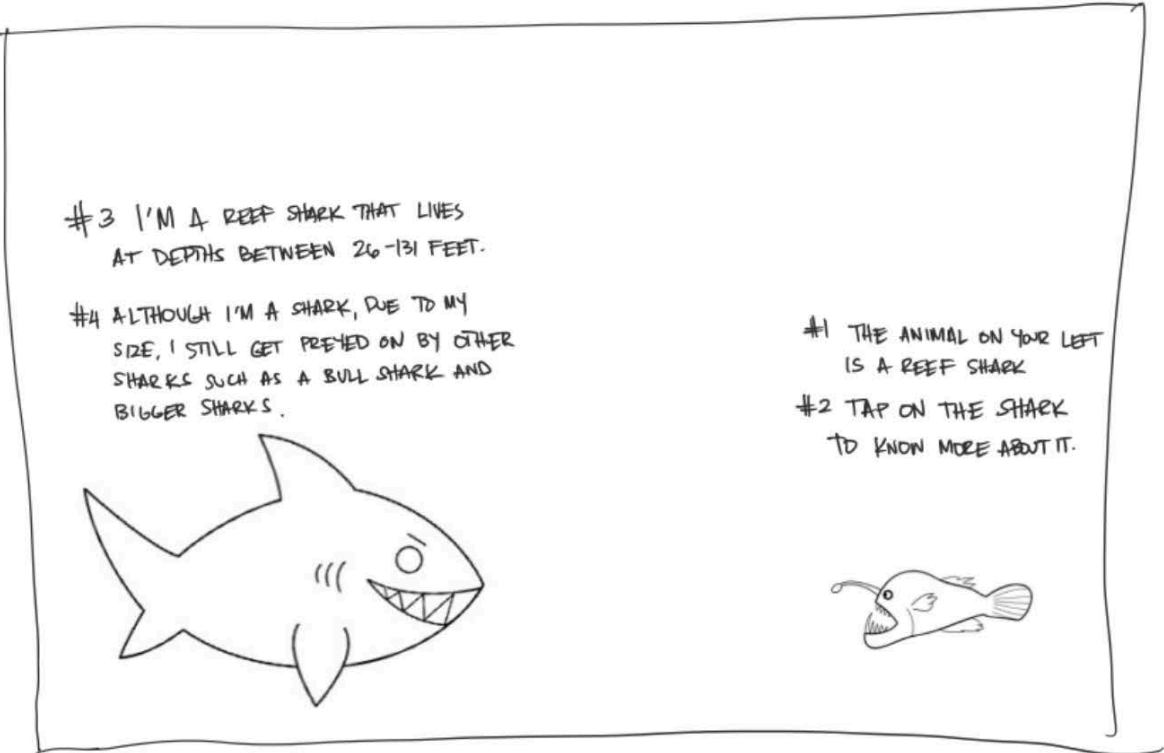 #3 I'M A REEF SHARK THAT LIVES
AT DEPTHS BETWEEN 26-131 FEET.
#4 ALTHOUGH I'M A SHARK, DUE TO MY
SIZE, I STILL GET PREYED ON BY OTHER
SHARKS SUCH AS A BULL SHARK AND
BIGGER SHARKS.
#1 THE ANIMAL ON YOUR LEFT
IS A REEF SHARK
#2 TAP ON THE SHARK
TO KNOW MORE ABOUT IT.